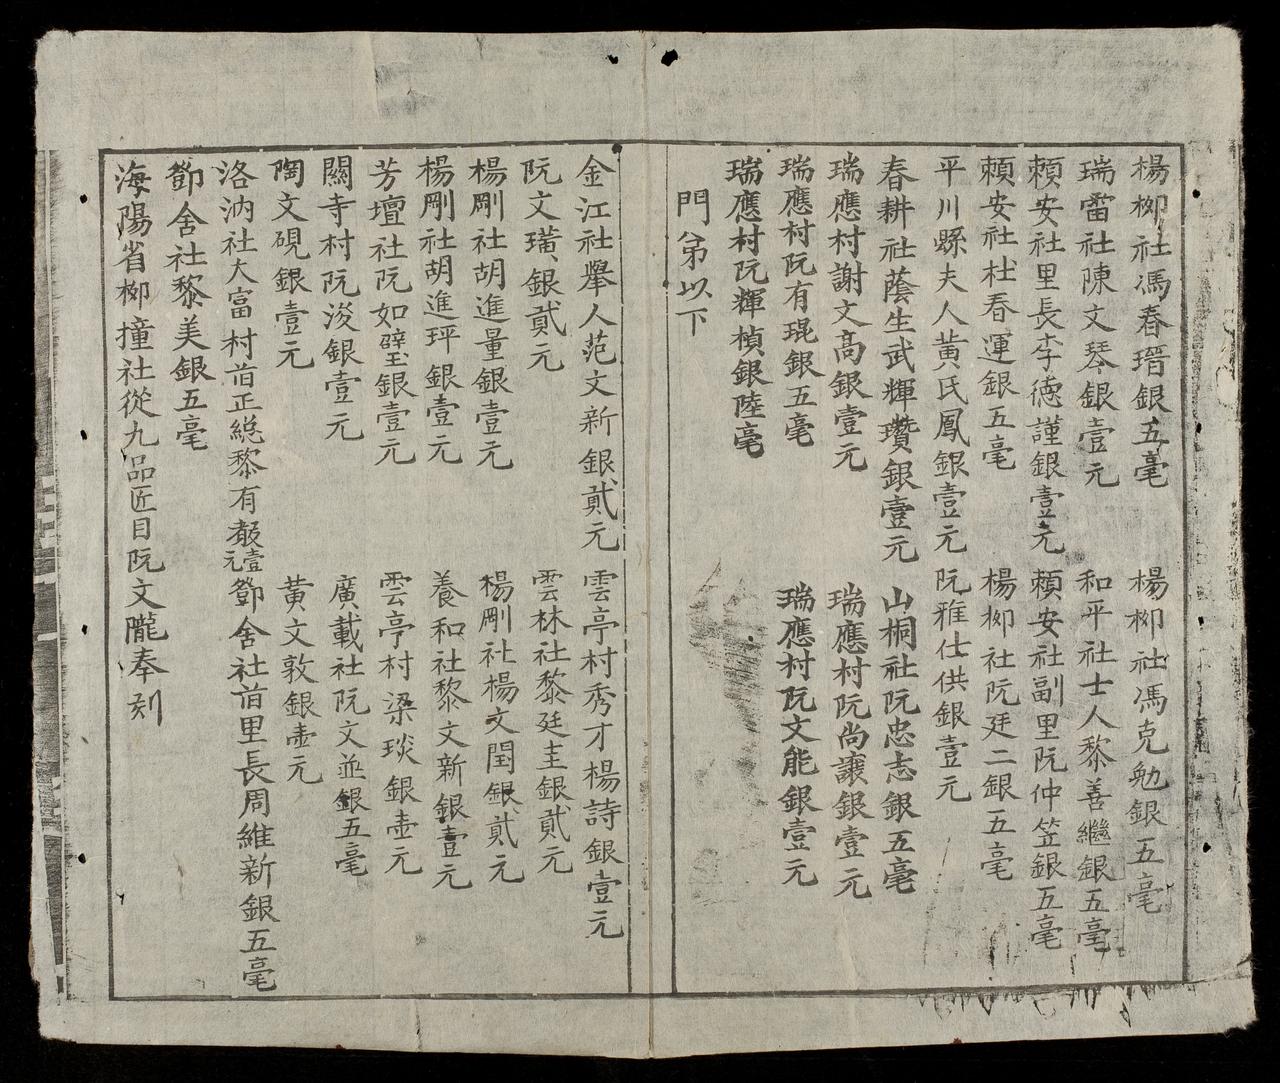 楊柳社馮春瑨銀五毫 楊柳社馮克勉銀五毫
瑞雷社陳文琴銀壹元 和平社士人黎善繼銀五毫
賴安社里長李德謹銀壹元 賴安社副里阮仲笠銀五毫
賴安社杜春運銀五毫 楊柳社阮廷二銀五毫
平川縣夫人黃氏鳳銀壹元 阮雅仕供銀壹元
春耕社蔭生武輝瓚銀壹元 山桐社阮忠志銀五毫
瑞應村謝文高銀壹元 瑞應村阮尚讓銀壹元
瑞應村阮有琨銀五毫 瑞應村阮文能銀壹元
瑞應村阮輝楨銀陸毫
門弟以下
金江社舉人范文新銀貳元 雲亭村秀才楊詩銀壹元
阮文璜銀貳元 雲林社黎廷圭銀貳元
楊剛社胡進量銀壹元 楊剛社楊文閏銀貳元
楊剛社胡進玶銀壹元 養和社黎文新銀壹元
芳壇社阮如璧銀壹元 雲亭村梁琰銀壺元
關寺村阮淡銀壹元 廣載社阮文並銀五毫
陶文硯銀壹元 黃文敦銀壺元
洛汭社大富村首正總黎有𪔠壹元 鄧舍社首里長周維新銀五毫
鄧舍社黎美銀五毫
海陽省柳撞社從九品匠目阮文隴奉刻